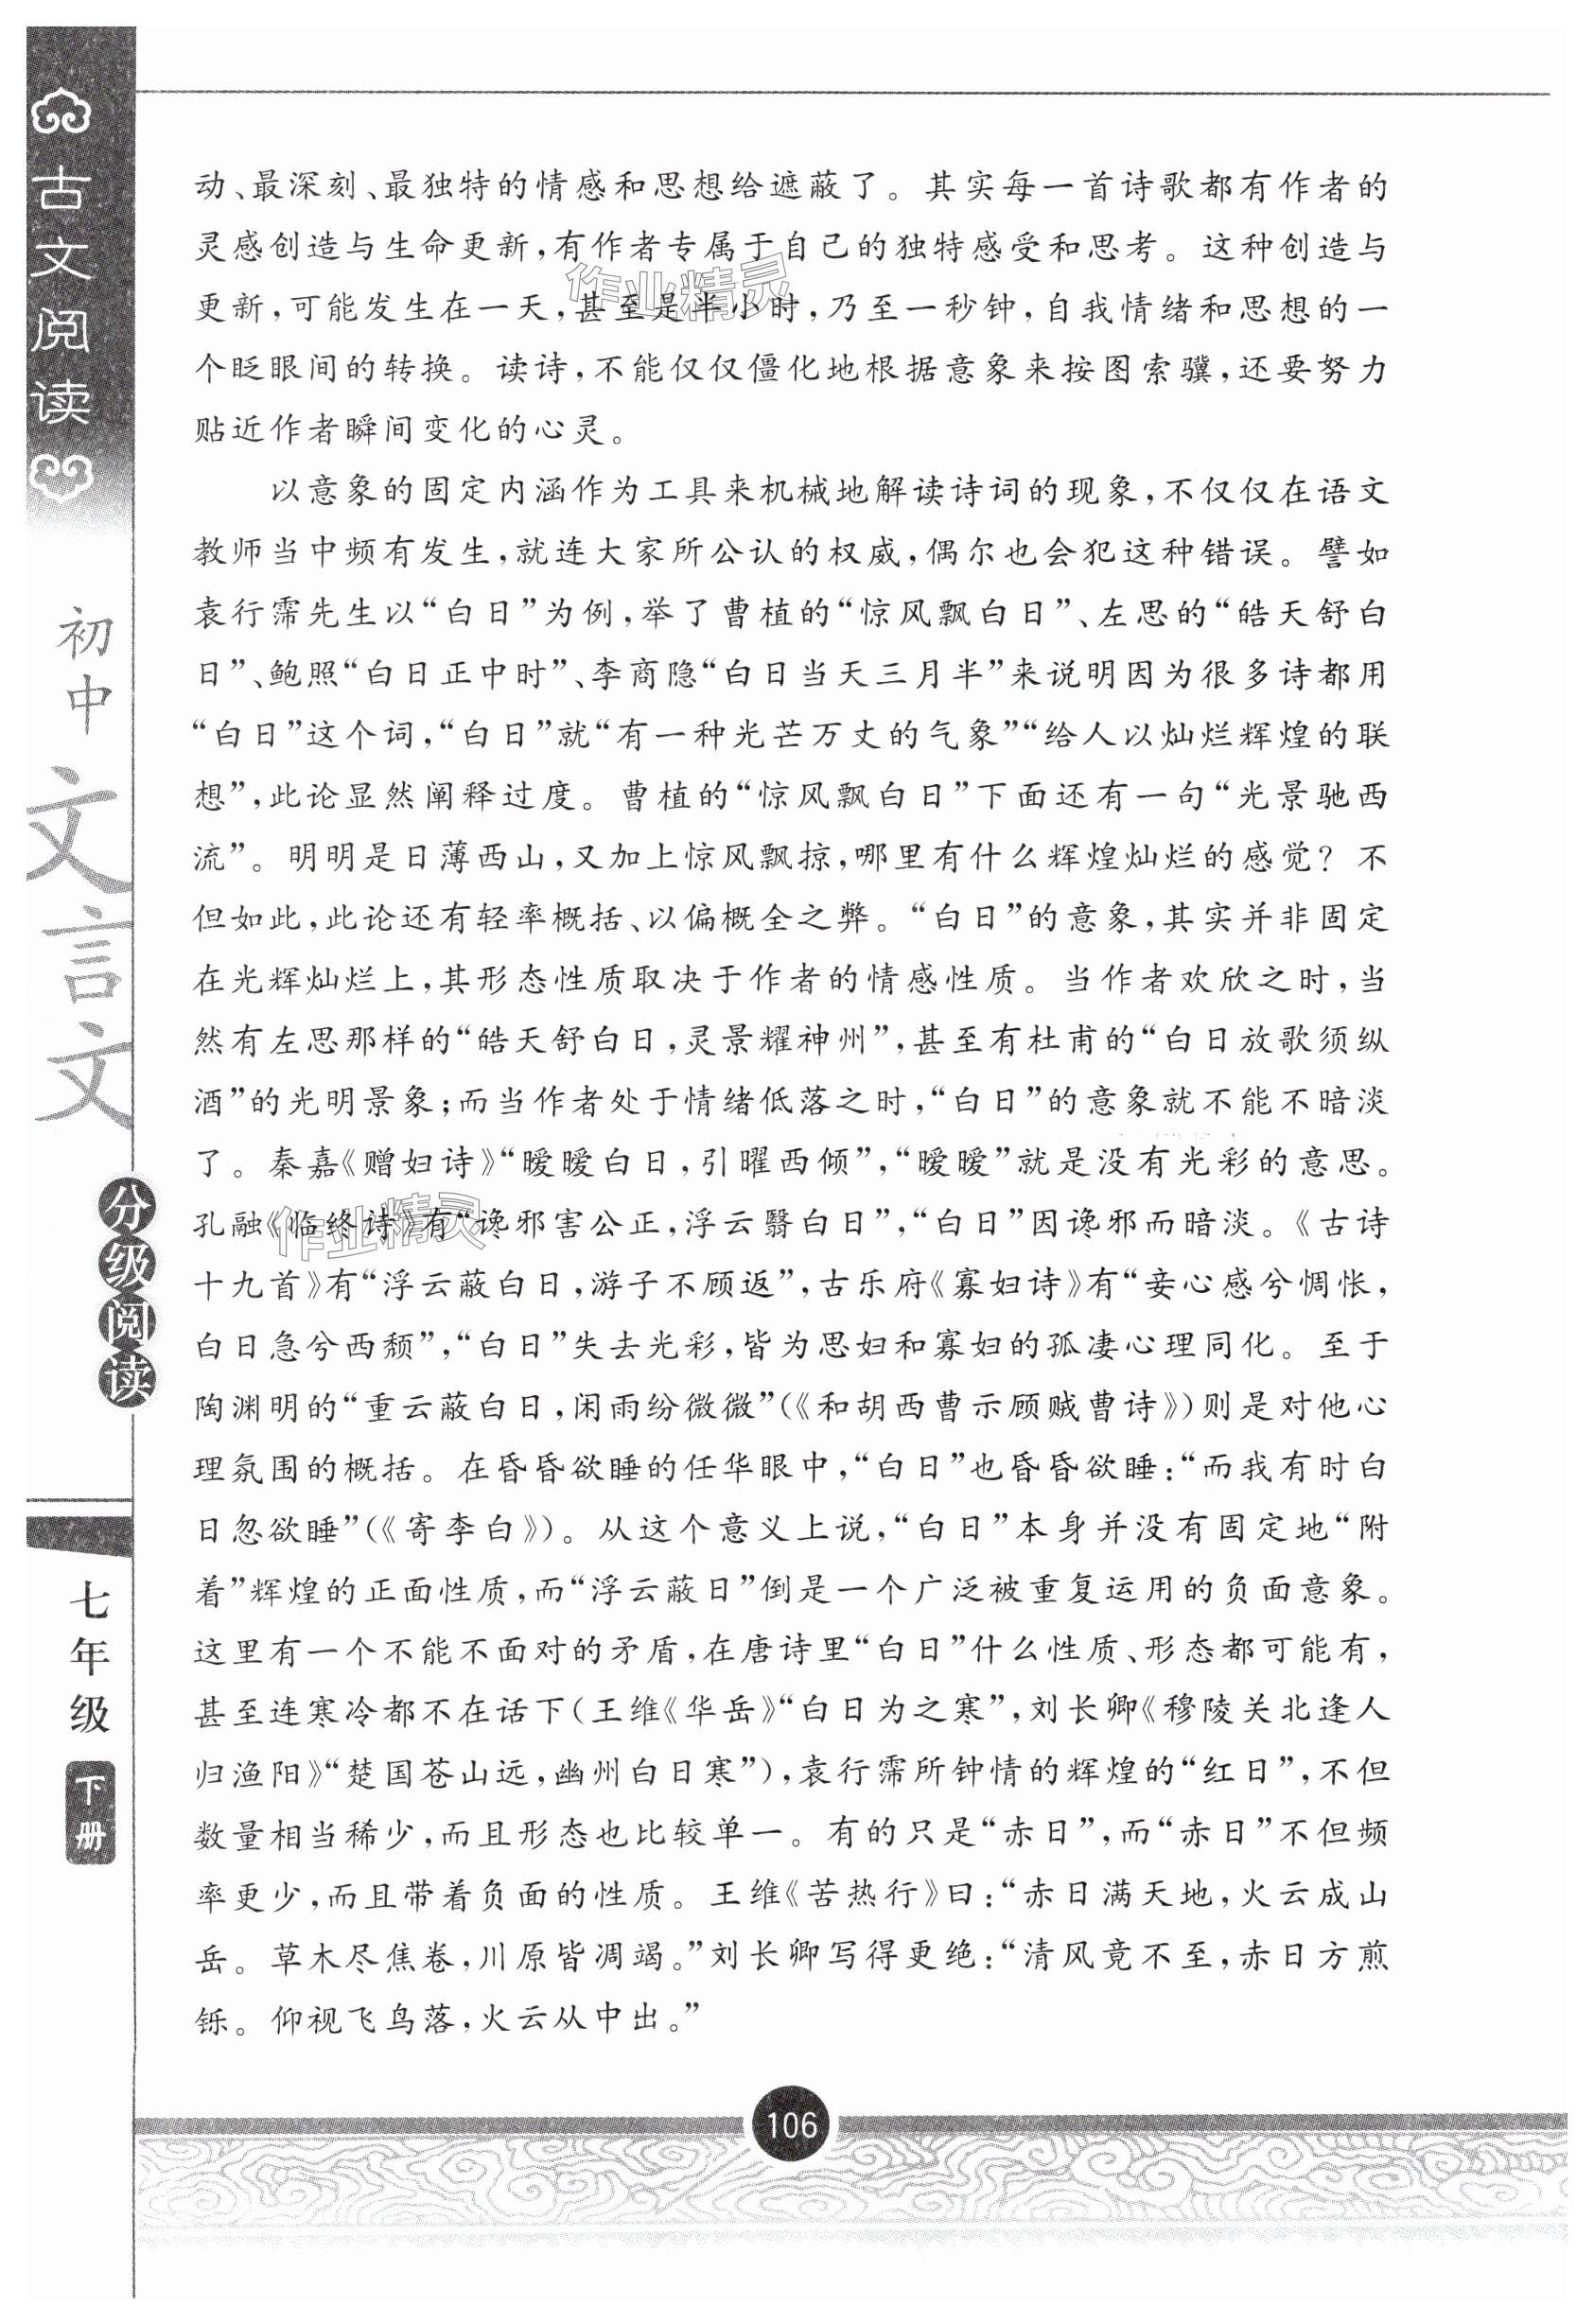 古文阅读
初中
文言文
分级阅读
七年级
下册
动、最深刻、最独特的情感和思想给遮蔽了。其实每一首诗歌都有作者的
灵感创造与生命更新,有作者专属于自己的独特感受和思考。这种创造与
更新,可能发生在一天,甚至是半小时,乃至一秒钟,自我情绪和思想的一
个眨眼间的转换。读诗,不能仅仅僵化地根据意象来按图索骥,还要努力
贴近作者瞬间变化的心灵。
以意象的固定内涵作为工具来机械地解读诗词的现象,不仅仅在语文
教师当中频有发生,就连大家所公认的权威,偶尔也会犯这种错误。譬如
袁行霈先生以“白日”为例,举了曹植的“惊风飘白日”、左思的“皓天舒白
日”、鲍照“白日正中时”、李商隐“白日当天三月半”来说明因为很多诗都用
“白日”这个词,“白日”就“有一种光芒万丈的气象”“给人以灿烂辉煌的联
想”,此论显然阐释过度。曹植的“惊风飘白日”下面还有一句“光景驰西
流”。明明是日薄西山,又加上惊风飘掠,哪里有什么辉煌灿烂的感觉?不
但如此,此论还有轻率概括、以偏概全之弊。“白日”的意象,其实并非固定
在光辉灿烂上,其形态性质取决于作者的情感性质。当作者欢欣之时,当
然有左思那样的“皓天舒白日,灵景耀神州”,甚至有杜甫的“白日放歌须纵
酒”的光明景象;而当作者处于情绪低落之时,“白日”的意象就不能不暗淡
了。秦嘉《赠妇诗》“暧暧白日,引曜西倾”,“暧暧”就是没有光彩的意思。
孔融《临终诗》有“谗邪害公正,浮云翳白日”,“白日”因谗邪而暗淡。《古诗
十九首》有“浮云蔽白日,游子不顾返”,古乐府《寡妇诗》有“妾心感兮惆怅,
白日急兮西颓”,“白日”失去光彩,皆为思妇和寡妇的孤凄心理同化。至于
陶渊明的“重云蔽白日,闲雨纷微微”(《和胡西曹示顾贼曹诗》)则是对他心
理氛围的概括。在昏昏欲睡的任华眼中,“白日”也昏昏欲睡:“而我有时白
日忽欲睡”(《寄李白》)。从这个意义上说,“白日”本身并没有固定地“附
着”辉煌的正面性质,而“浮云蔽日”倒是一个广泛被重复运用的负面意象。
这里有一个不能不面对的矛盾,在唐诗里“白日”什么性质、形态都可能有,
甚至连寒冷都不在话下(王维《华岳》“白日为之寒”,刘长卿《穆陵关北逢人
归渔阳》“楚国苍山远,幽州白日寒”),袁行霈所钟情的辉煌的“红日”,不但
数量相当稀少,而且形态也比较单一。有的只是“赤日”,而“赤日”不但频
率更少,而且带着负面的性质。王维《苦热行》曰:“赤日满天地,火云成山
岳。草木尽焦卷,川原皆凋竭。”刘长卿写得更绝:“清风竟不至,赤日方煎
铄。仰视飞鸟落,火云从中出。”
106
作业精灵
作业精灵